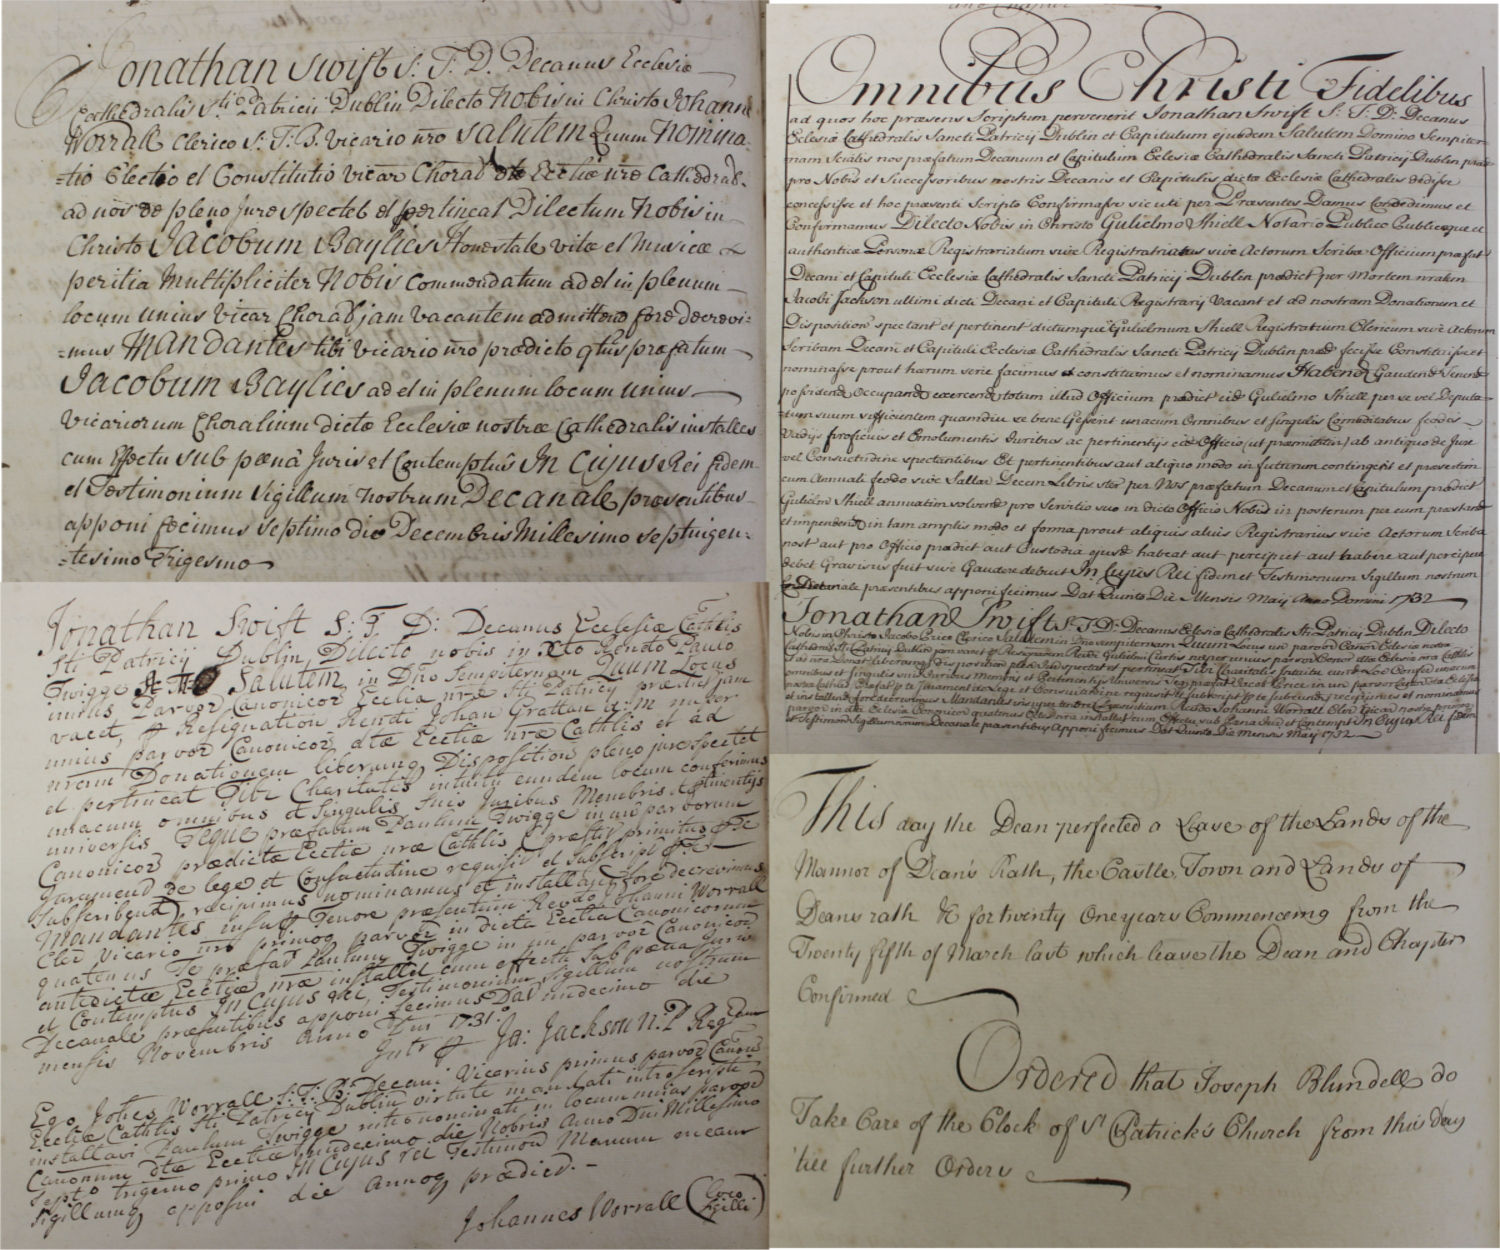 Jonathan Swift S: T. D. Decanus Ecclesiæ
Cathedralis Sti Patricii Dublin Dilecto Nobis in Christo Johanni
Worrall Clerico S: T. B. Vicario nro Salutem Quum Nomina-
-tio Electio et Constitutio Vicar Choral Ecctiæ nræ Cathedral.
ad nos de pleno jure spectet et pertineat Dilectum Nobis in
Christo Jacobum Baylies Honestate vitæ et Musicæ
peritia Multipliciter Nobis Commendatum ad et in plenum
locum unius Vicar Choral jam vacantem admittend fore decrevi-
-mus Mandantes tibi Vicario nro prædicto qtus præfatum
Jacobum Baylies ad et in plenum locum unius
Vicariorum Choralium dictæ Ecclesiæ nostræ Cathedralis installes
cum Effectu sub pæna Juris et Contemptus In Cujus Rei fidem
et Testimonium Sigillum nostrum Decanale præsentibus
apponi fecimus septimo die Decembris Millesimo septingen-
-tesimo Trigesmo
Omnibus Christi Fidelibus
ad quos hoc præsens Scriptum pervenerit Jonathan Swift S: T: D: Decanus
Eclesiæ Cathedralis Sancti Patricij Dublin et Capitulum ejusdem Salutem Domino Sempiter-
nam Sciatis nos præfatum Decanum et Capitulum Eclesiæ Cathedralis Sancti Patricij Dublin
pro Nobis et Successoribus nostris Decanis et Capitulis dictæ Ecclesiæ Cathedralis dedisse
concessisse et hoc præsenti Scripto Confirmasse sicuti per Præsentes Damus Concedimus et
Confirmamus Dilecto Nobis in Christo Gulielmo Shiell Notario Publico Publicaque et
authentica Personæ Registrariatum sive Registrariatus sive Actorum Scribæ Officium præfat
Decani et Capituli Ecclesiæ Cathedralis Sancti Patricij Dublin prædict per Mortem
Jacobi Jackson ultimi dicti Decani et Capituli Registrarij Vacant et ad nostram Donationem et
Disposition spectant et pertinent dictumque Gulielmum Shiell Registrarium Clericum sive Actorum
Scribam Decani et Capituli Ecclesiæ Cathedralis Sancti Patricij Dublin præd fecisse Constituisse et
nominasse prout harum serie facimus constituimus et nominamus Habend Gaudend Tenend
possidend Occupand exercend totum illud Officium prædict eid Gulielmo Shiell per se vel Deputa-
-tum suum sufficientem quamdiu se bene Gesserit unacum Omnibus et singulis Comoditatibus feodis
Vadijs proficuis et Emolumentis Juribus ac pertinentijs Officio (ut præmittitur) ab antiquo de Jure
vel Consuetudine spectantibus Et pertinentibus aut aliquo modo in futurum contingent et præsertim
cum Annuali feodo sive Sallar Decem Libris ster per Nos præfatum Decanum et Capitulum prædict
Gulielm Shiell annuatim solvend pro Servitio suo in dicto Officio Nobis in posterum per eum præstand
et impendend in tam amplis modo et forma prout aliquis alius Registrarius sive Actorum Scriba
post aut pro Officio prædict aut Custodia habeat aut percipiet aut habere aut percipere
debet Gravisus fuit sive Gaudere debuit In Cujus Rei fidem et Testimonium Sigillum nostrum
præsentibus apponi fecimus Dat Quinto Die Mensis Maij Anno Domini 1732
Jonathan Swift S: T: D: Decanus Eclesiæ Cathedralis Sti Patricij Dublin Dilecto
Nobis in Christo Jacobo King Clerico Salutem in Dno Sempiternam Quum Locus un parvor Canon Eclesiæ nostræ
Cathedralis Sti Patricij Dublin jam vacet Resignaon Revdi Gulielmi Curtis nuper unius parvor Canon
Maij 1732
Jonathan Swift S: T. D: Decanus Ecclesiæ Cathlis
Sti Patricij Dublin, Dilecto nobis in Xto Rendo Paulo
Twigge Salutem in Dno Sempiternam Quum Locus
unius Parvor Canonicor Ecctia nræ Sti Patricij prædict jam
vacet, Resignation Rendi Johan Grattan A: M nuper
unius parvor Canonicor dtæ Ecctiæ nræ Cathlis et ad
nrem Donationem liberamq Disposition pleno jure spectet
et pertineat Tibi Charitatis intuitu eundem locum conferimus
unacum omnibus et Singulis Suis Juribus Membris et ptinentijs
universis Teque præfatum Paulum Twigge in un parvorum
Canonicor prædictæ Ecctiæ nræ Cathlis (præstit primitus Te
Jurament de lege et Consuetudine requisit et Subscript
Subscribend) recipimus nominamus et installand fore decrevimus
Mandantes insup Tenore præsentium Revdo Johanni Worrall
Cler Vicario nro primoq parvor in dicta Ecctia Canonicorum
quatenus Te præfat Paulum Twigge in un parvor Canonicor
antedictæ Ecctiæ nræ installet cum effectu Sub pæna Juris
et Contemptus In Cujus rei, Testimonium Sigillum nostrum
Decanale præsentibus apponi fecimus Dat undecimo die
mensis Novembris Anno Dni 1731.
Intr Ja: Jackson N. P Reg
Ego Johes Worrall S: T: B: Decani Vicarius primus parvor Canonic
Ecctiæ Cathlis Sti Patricij Dublin virtute mandati introscripti
installavi Paulum Twigge intronominat in locum unius parvor
Canonicor dtæ Ecctiæ undecimo die Nobris Anno Dni Millesimo
Septo trigesmo primo In Cujus rei Testimon Manum meam
Sigillumq apposui die annoq prædict. -
Johannes Worrall (Loco Sigilli)
This day the Dean perfected a Lease of the Lands of the
Mannor of Deans Rath, the Castle, Town and Lands of
Deans rath &c for twenty One years Commenceing from the
Twenty fifth of March last which lease the Dean and Chapter
Confirmed
Ordered that Joseph Blundell do
Take Care of the Clock of St Patrick's Church from this day
till further Orders